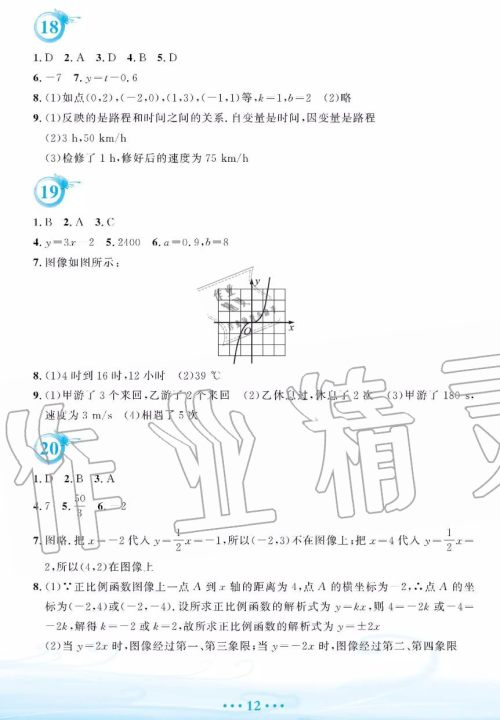 18
1. D 2. A 3. D 4. B 5. D
6. -7 7. y=t-0.6
8. (1)如点(0,2),(-2,0),(1,3),(-1,1)等,k=1,b=2 (2)略
9. (1)反映的是路程和时间之间的关系.自变量是时间,因变量是路程
(2)3 h,50 km/h
(3)检修了 1 h,修好后的速度为 75 km/h
19
1. B 2. A 3. C
4. y=3x 2 5. 2400 6. a=0.9,b=8
7. 图像如图所示:
y
O
x
8. (1)4 时到 16 时,12 小时 (2)39 ℃
9. (1)甲游了 3 个来回,乙游了 2 个来回 (2)乙休息过,休息了 2 次 (3)甲游了 180 s,
速度为 3 m/s (4)相遇了 5 次
20
1. D 2. B 3. A
4. 7 5. 50/3 6. 2
7. 图略.把 x=-2 代入 y=1/2x-1,所以(-2,3)不在图像上;把 x=4 代入 y=1/2x-
2,所以(4,2)在图像上
8. (1)∵正比例函数图像上一点 A 到 x 轴的距离为 4,点 A 的横坐标为-2,∴点 A 的坐
标为(-2,4)或(-2,-4).设所求正比例函数的解析式为 y=kx,则 4=-2k 或-4=
-2k,解得 k=-2 或 k=2,故所求正比例函数的解析式为 y=±2x
(2)当 y=2x 时,图像经过第一、第三象限;当 y=-2x 时,图像经过第二、第四象限
作业精灵
12